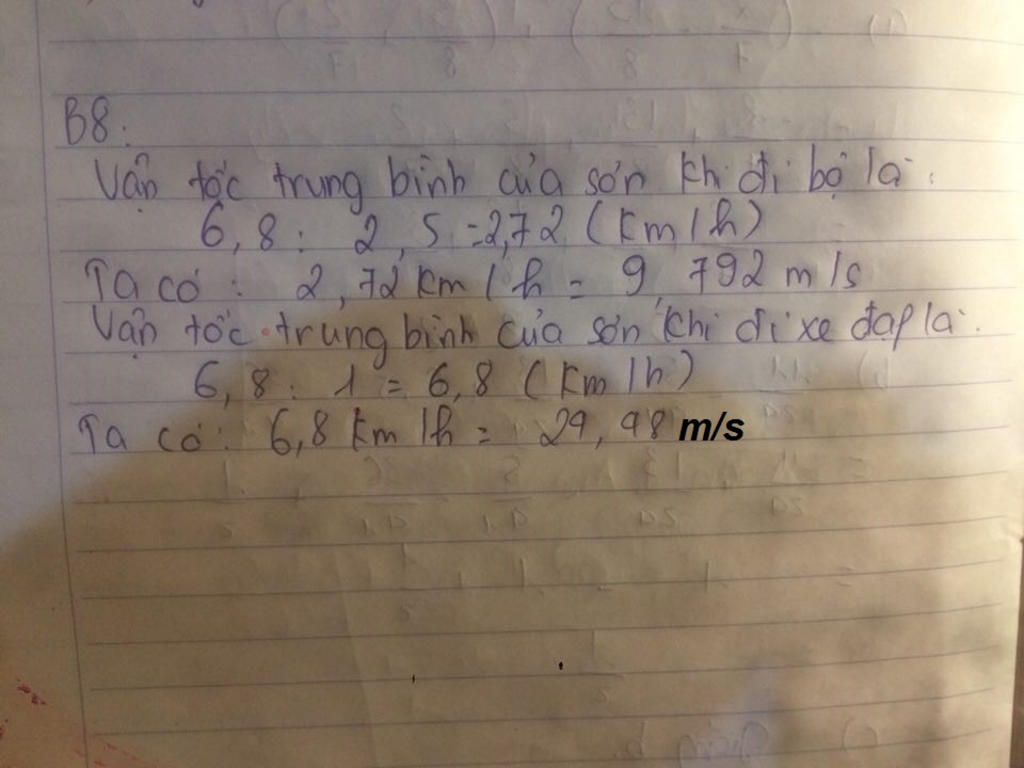 B8:
Vận tốc trung bình của sơn khi đi bộ là:
6,8 : 2,5 = 2,72 (km/h)
Ta có: 2,72 km/h = 9,792 m/s
Vận tốc trung bình của sơn khi đi xe đạp là:
6,8 : 1 = 6,8 (km/h)
Ta có: 6,8 km/h = 29,98 m/s